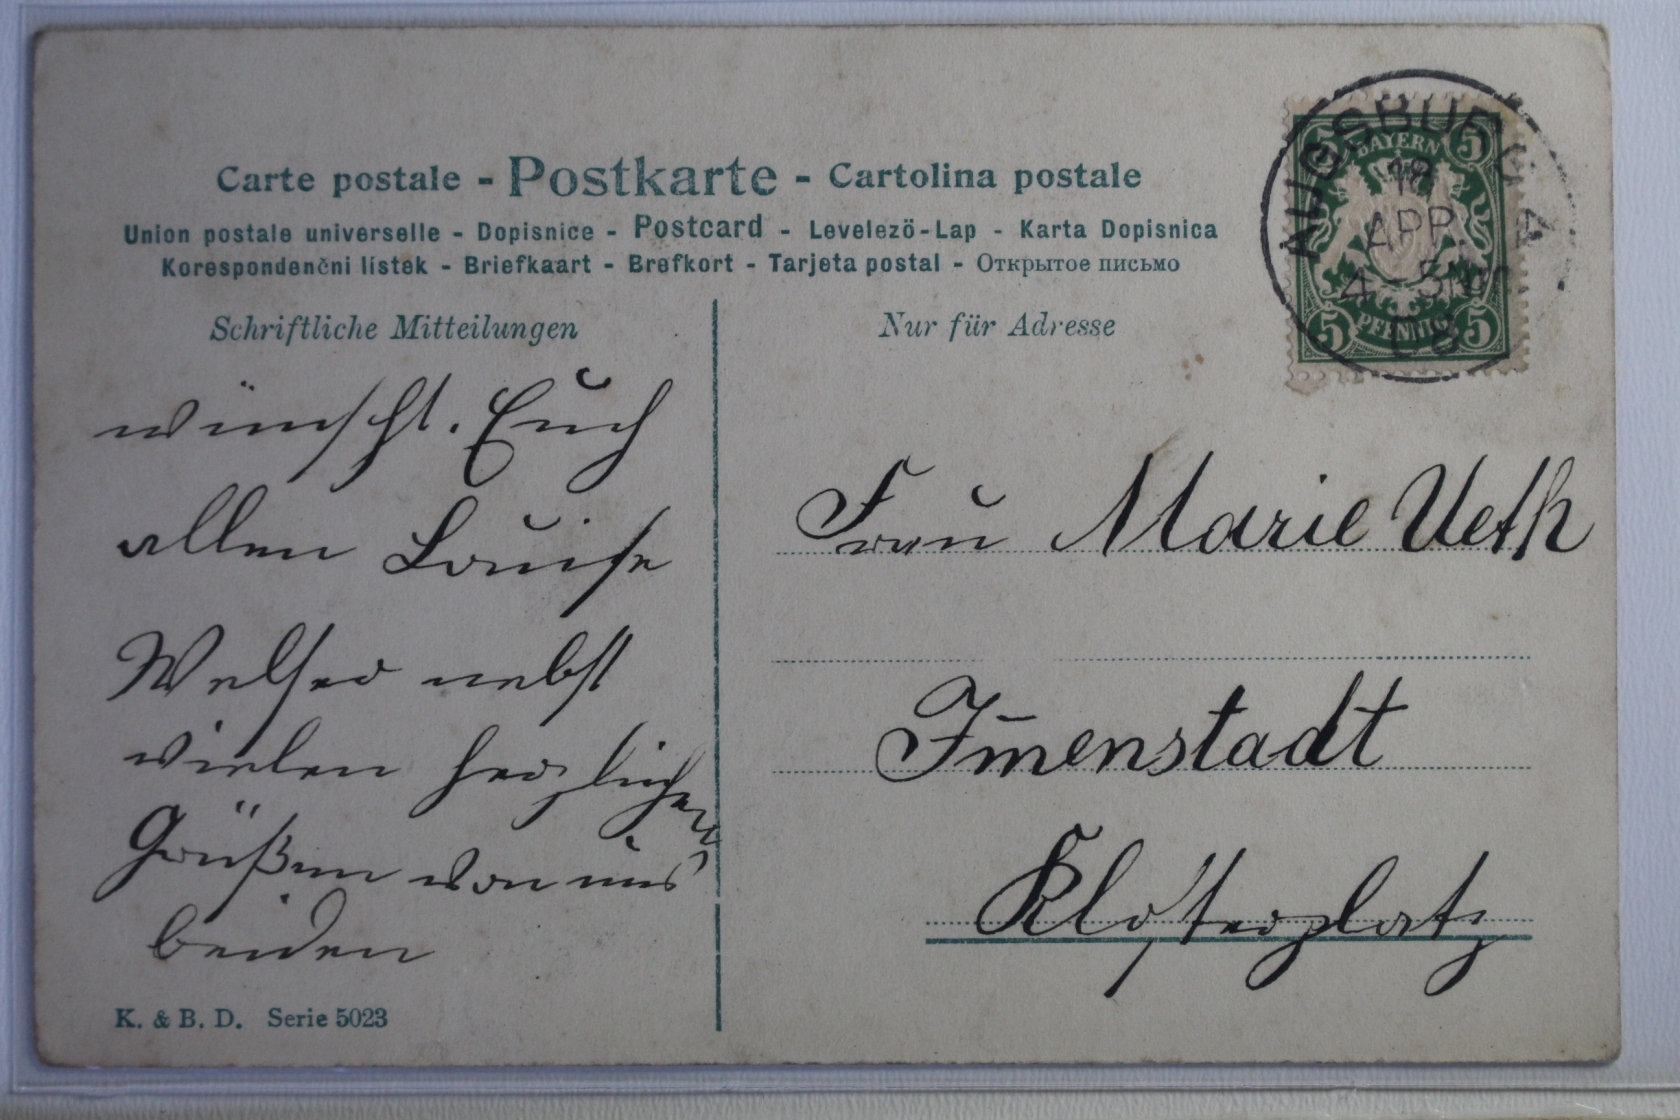 Carte postale - Postkarte - Cartolina postale
Union postale universelle - Dopisnice - Postcard - Levelezö-Lap - Karta Dopisnica
Korespondenčni listek - Briefkaart - Brefkort - Tarjeta postal - Открытое письмо
Schriftliche Mitteilungen
wünscht. Euch
allen Louise
Welser nebst
vielen herzlichen
Grüßen von uns
beiden
K. & B. D. Serie 5023
Nur für Adresse
BAYERN
5 5
5 5
PFENNIG
AUGSBURG 4
18
APR.
4-5Nm
08
Frau Marie Ueth
Im̄enstadt
Klosterplatz